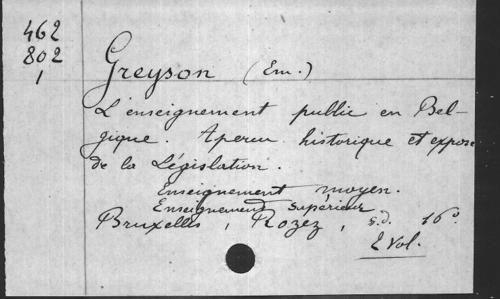 462
802
1
Greyson (Em.)
L'enseignement public en Bel-
gique. Aperçu historique et exposé
de la Législation.
Enseignement moyen.
Enseignement supérieur
Bruxelles, Rozez, s.d. 16°
2 Vol.